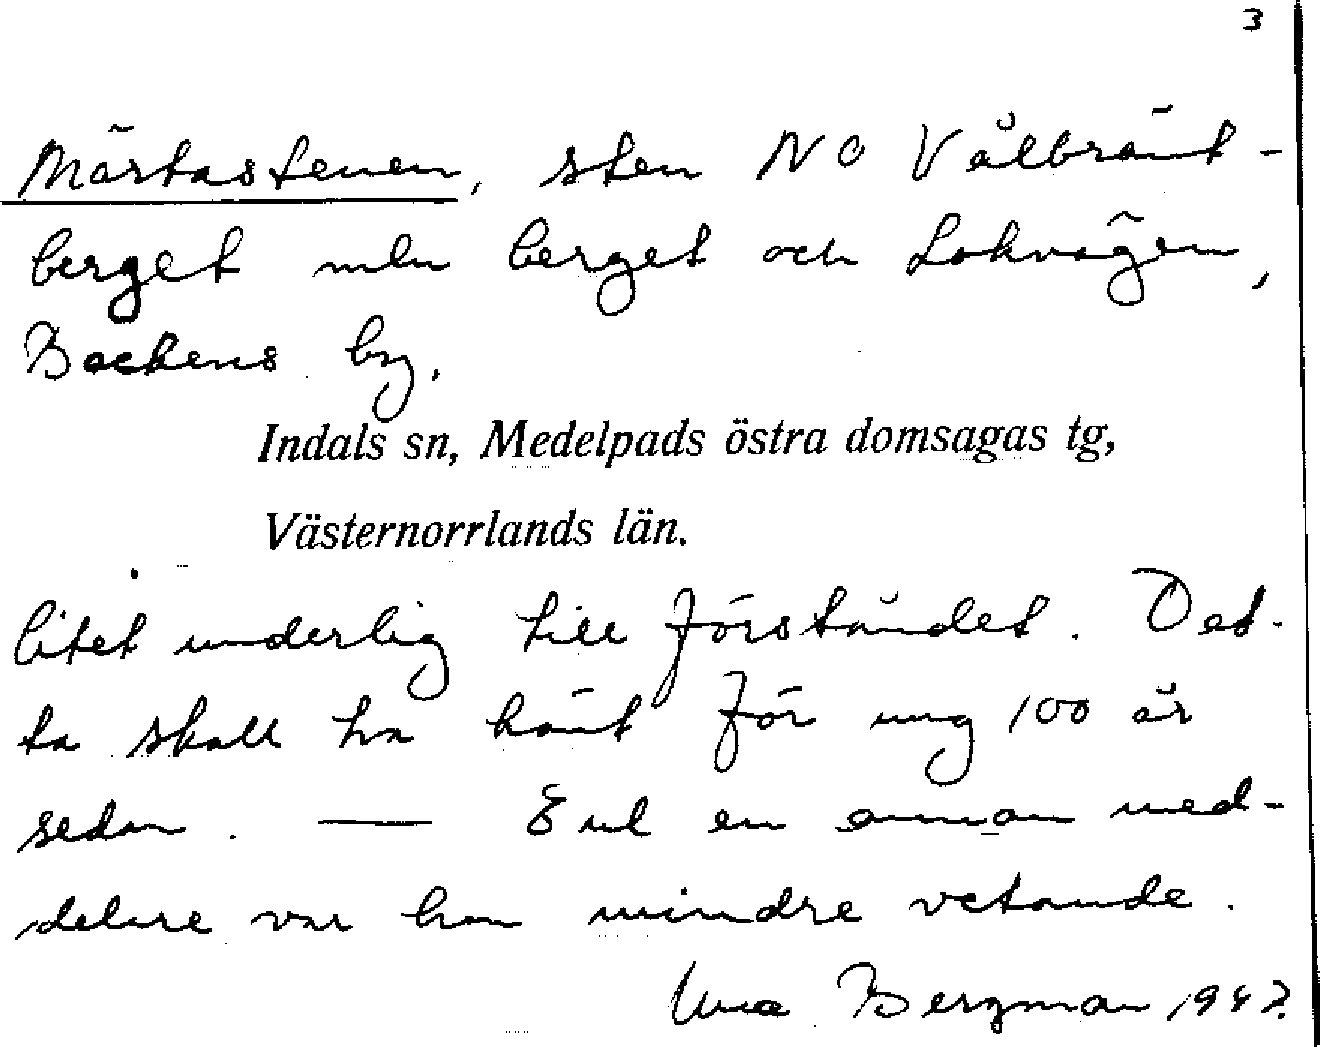 3
Märtastenen, sten NO Vålbränt-
berget mln berget och Lokvägen,
Backens by.
Indals sn, Medelpads östra domsagas tg,
Västernorrlands län.
litet underlig till förståndet. Det-
ta skall ha hänt för ung 100 år
sedan. — Enl en annan med-
delare var han mindre vetande.
Bergman 194